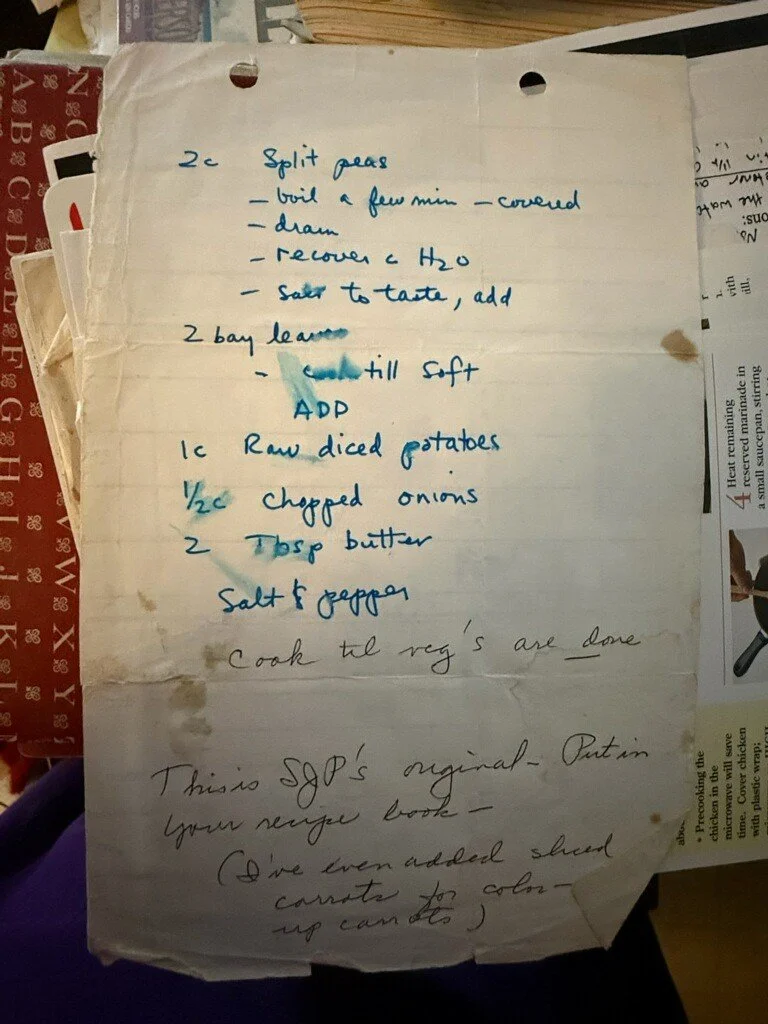 2c Split peas
– boil a few min – covered
– drain
– recover c H2O
– salt to taste, add
2 bay leaves
– cook till soft
ADD
1c Raw diced potatoes
1/2c chopped onions
2 Tbsp butter
Salt & pepper
Cook til veg's are done
This is SJP's original – Put in
your recipe book –
(I've even added sliced
carrots for color –
carrots)
A B C D E F G H I J K L
N
V W X Y
No
ons:
the wate
vith
ill,
4 Heat remaining
reserved marinade in
a small saucepan, stirring
• Precooking the
chicken in the
microwave will save
time. Cover chicken
with plastic wrap;